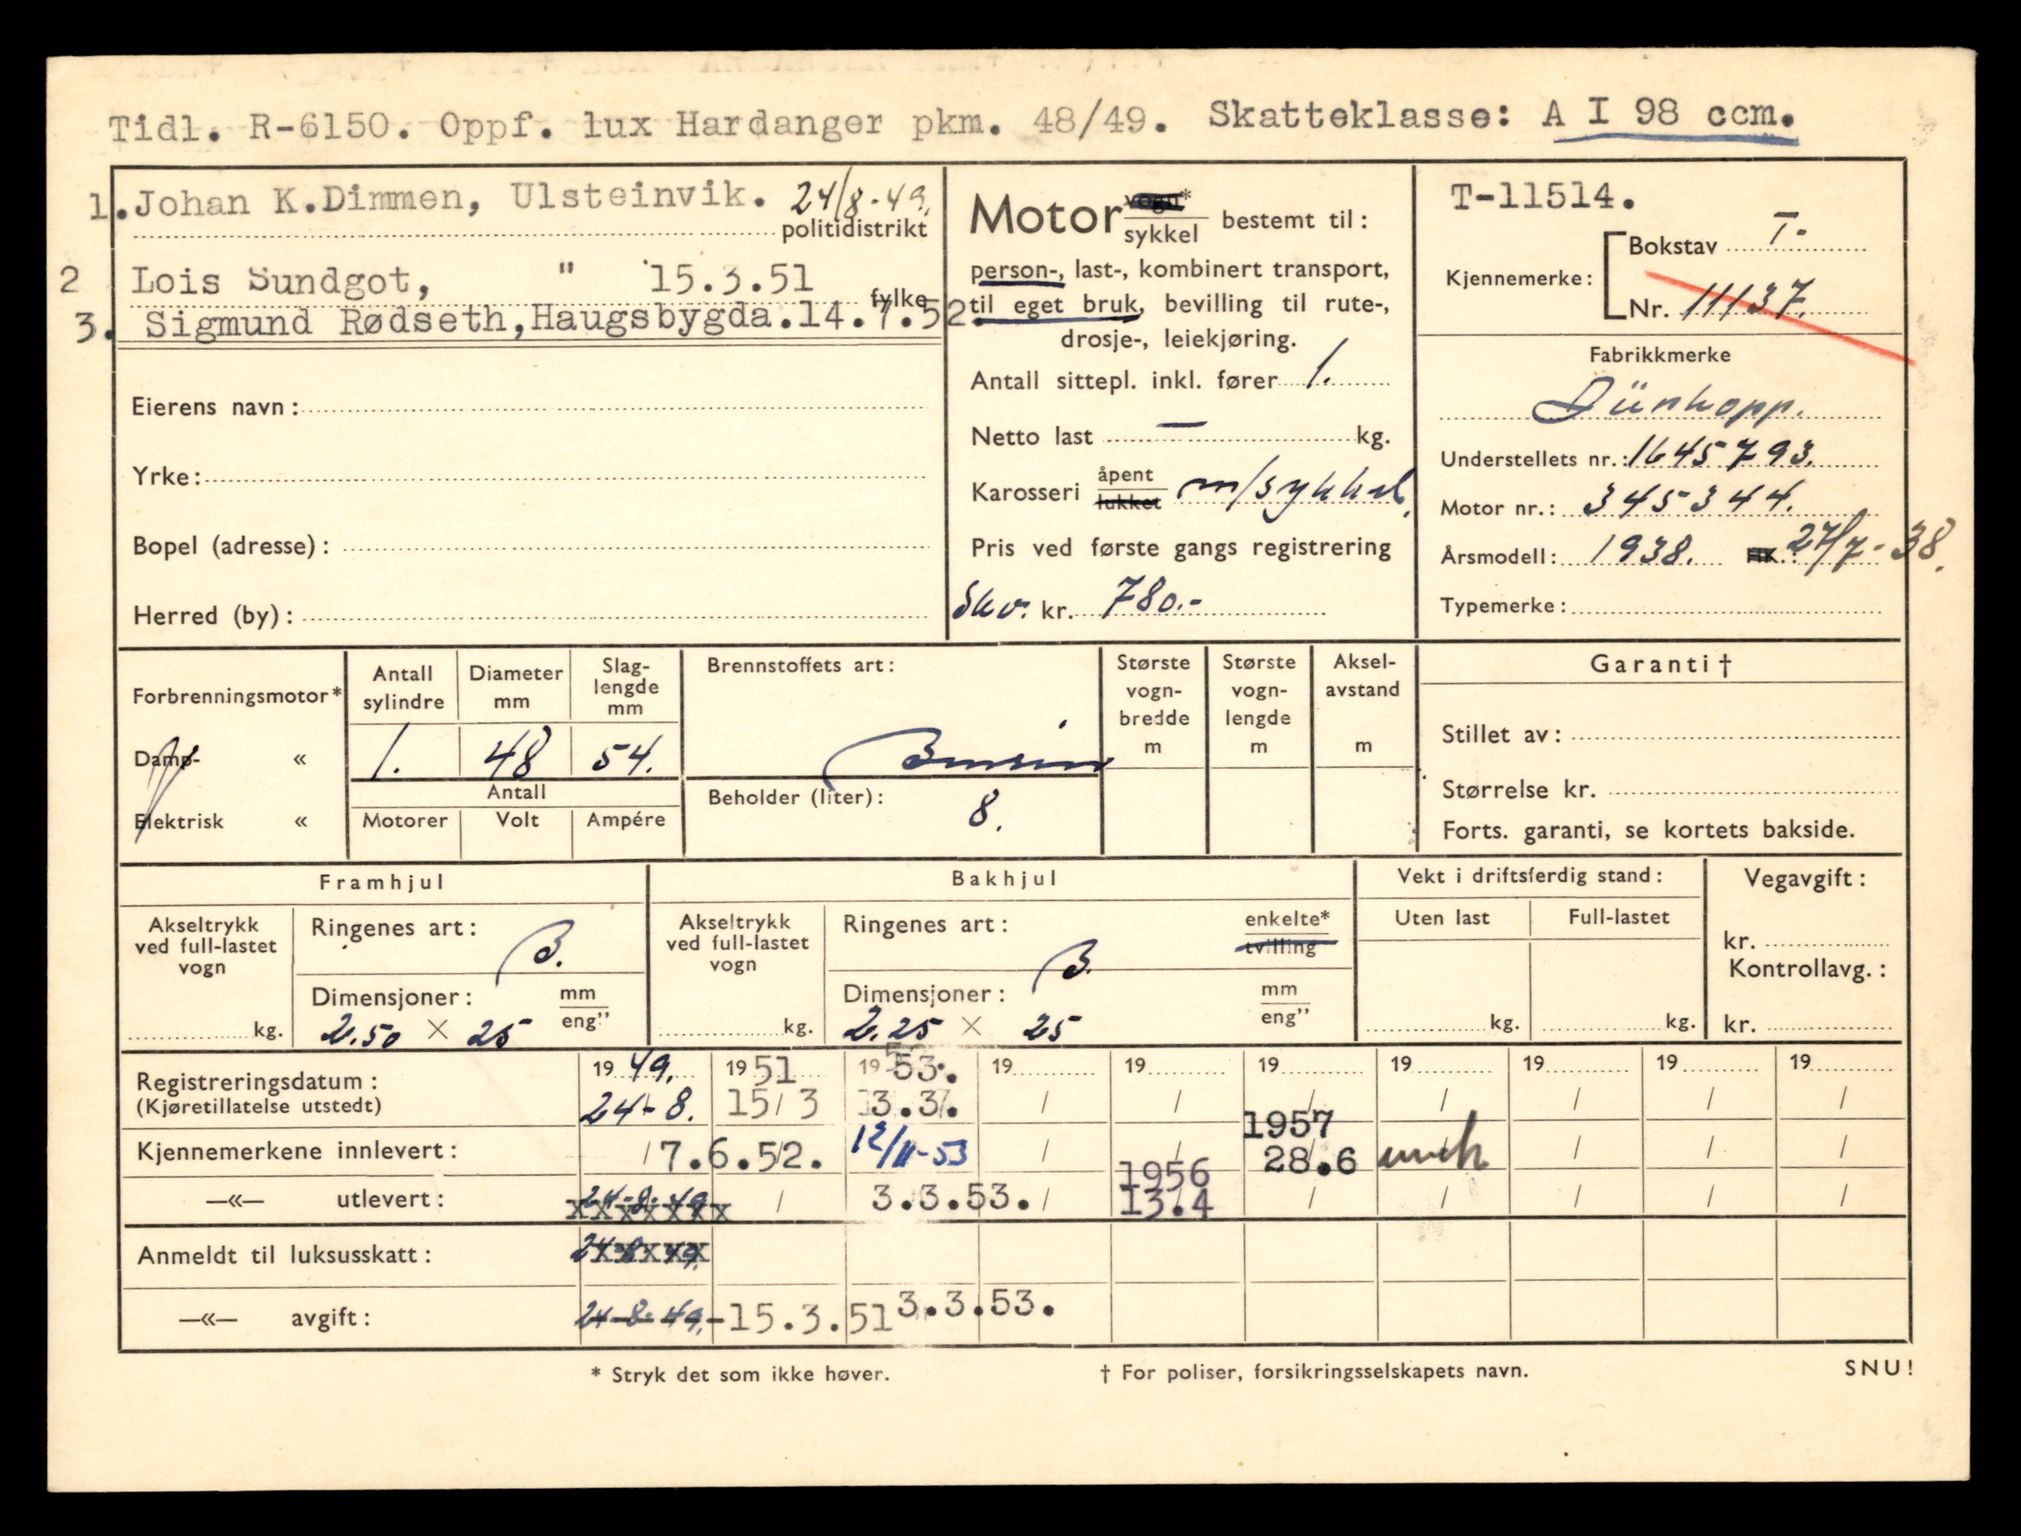 Tidl. R-6150. Oppf. lux Hardanger pkm. 48/49. Skatteklasse: A I 98 ccm.
1. Johan K.Dimmen, Ulsteinvik. 24/8-49.
politidistrikt
2 Lois Sundgot, " 15.3.51
fylke
3. Sigmund Rødseth, Haugsbygda. 14.7.52.
Eierens navn:
Yrke:
Bopel (adresse):
Herred (by):
Motor vogn* sykkel bestemt til:
person-, last-, kombinert transport,
til eget bruk, bevilling til rute-,
drosje-, leiekjøring.
Antall sittepl. inkl. fører 1.
Netto last — kg.
Karosseri åpent lukket m/sykkel.
Pris ved første gangs registrering
Skv. kr. 780.-
T-11514.
Kjennemerke: Bokstav T-
Nr. 11137.
Fabrikkmerke
Dürkopp.
Understellets nr.: 1645793.
Motor nr.: 345344.
Årsmodell: 1938. HK.: 27/7-38.
Typemerke:
Forbrenningsmotor*
Damp- «
Elektrisk «
Antall sylindre
Diameter mm
Slag-lengde mm
1. 48 54.
Antall
Motorer Volt Ampére
Brennstoffets art:
Bensin
Beholder (liter): 8.
Største vogn-bredde m
Største vogn-lengde m
Aksel-avstand m
Garanti †
Stillet av:
Størrelse kr.
Forts. garanti, se kortets bakside.
Framhjul
Akseltrykk ved full-lastet vogn
kg.
Ringenes art: B.
Dimensjoner: mm eng"
2.50 × 25
Bakhjul
Akseltrykk ved full-lastet vogn
kg.
Ringenes art: B. enkelte* tvilling
Dimensjoner: mm eng"
2.25 × 25
Vekt i driftsferdig stand:
Uten last Full-lastet
kg. kg.
Vegavgift:
kr.
Kontrollavg.:
kr.
19 49. 19 51 19 53. 19 19 19 19 19 19 19
Registreringsdatum:
(Kjøretillatelse utstedt) 24-8. 15/3 3.3. / / / / / / /
Kjennemerkene innlevert: / 7.6.52. 12/11-53 / / 1957 28.6 / / /
—«— utlevert: 24-8-49. / 3.3.53. / 1956 13.4 / / / / /
Anmeldt til luksusskatt: 24-8-49.
—«— avgift: 24-8-49.-15.3.51 3.3.53.
* Stryk det som ikke høver. † For poliser, forsikringsselskapets navn. SNU!